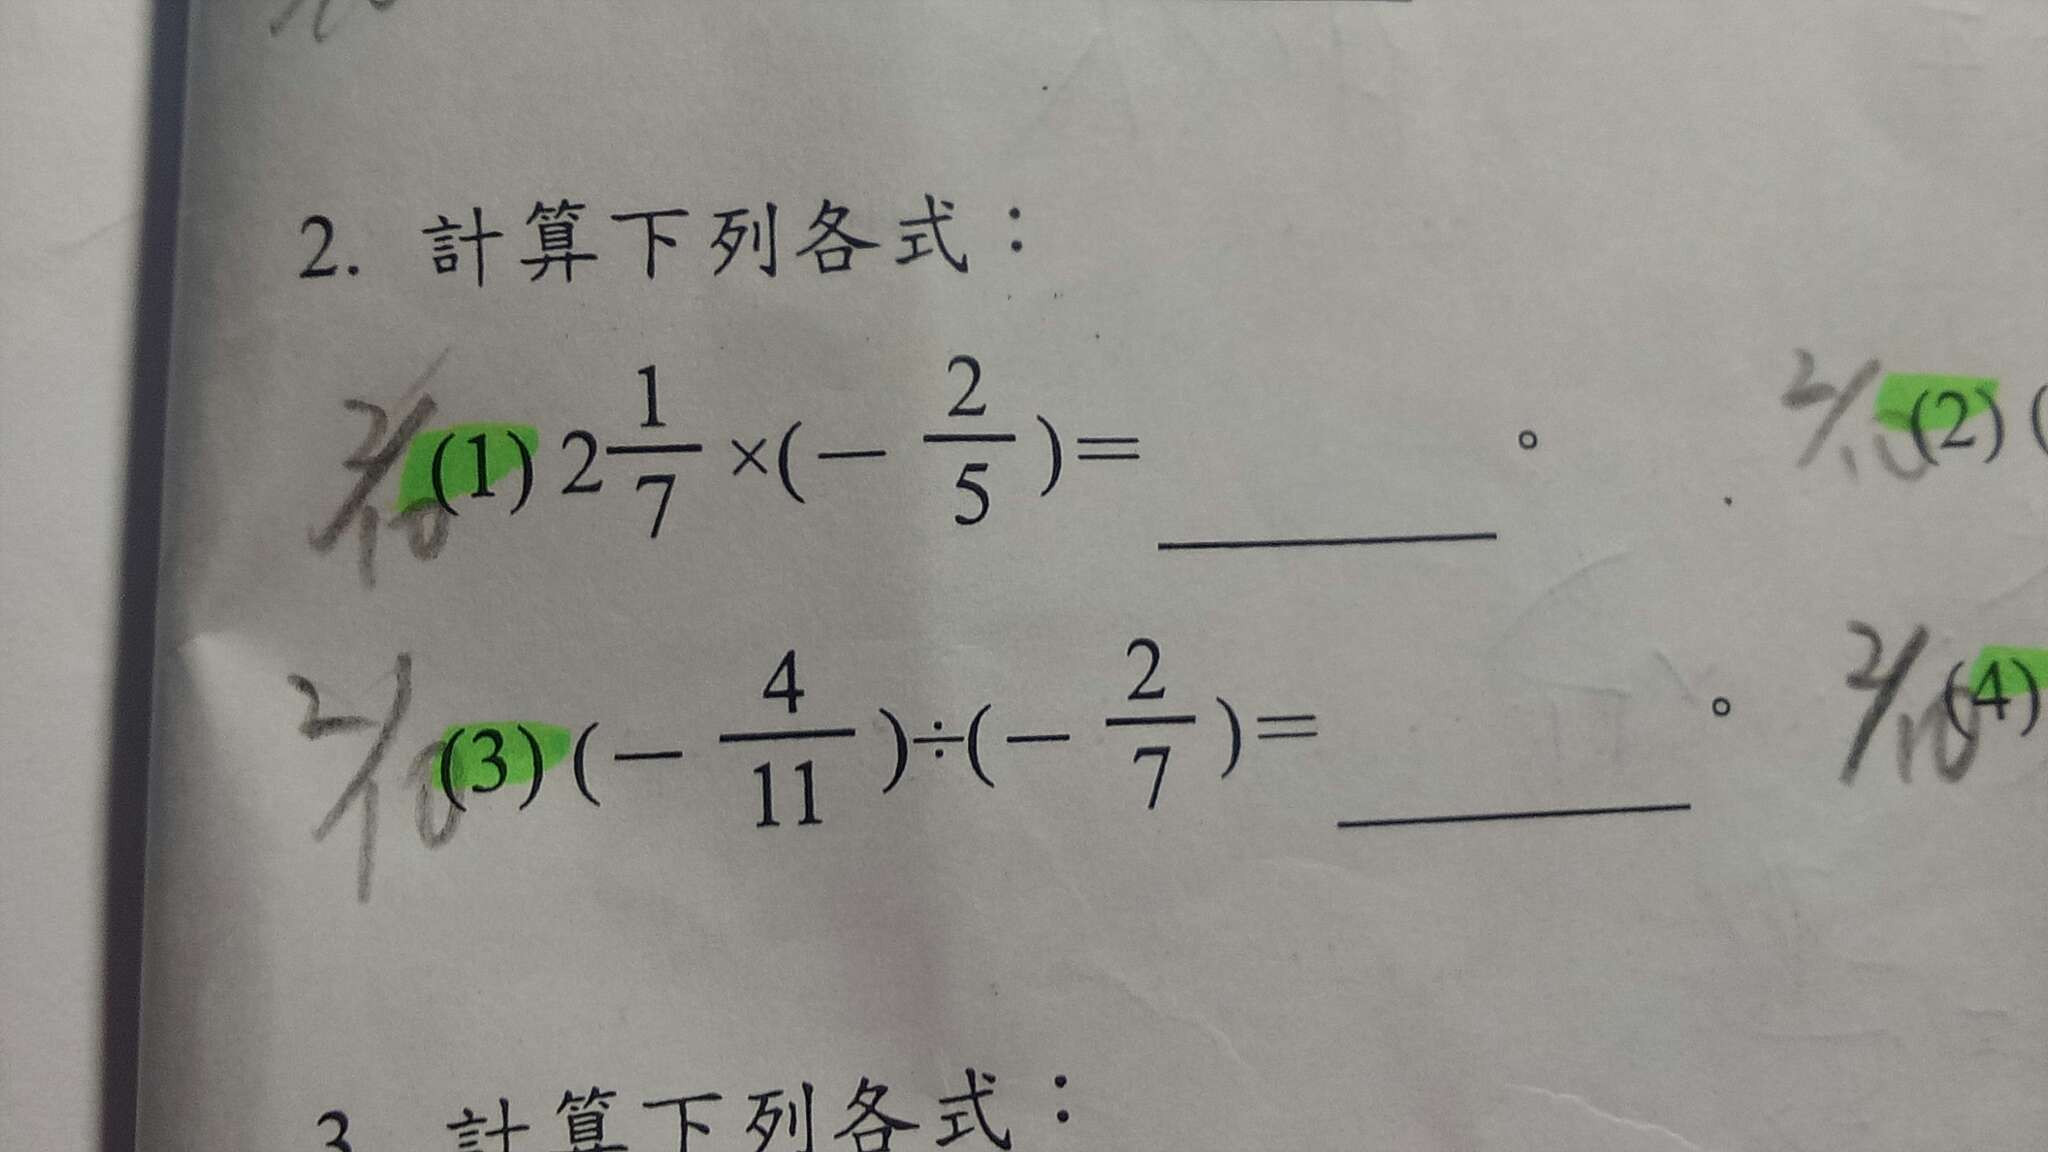 2. 計算下列各式：
2/10 (1) 2 1/7 ×(− 2/5 )= ______ 。 2/10 (2) (
2/10 (3) (− 4/11 )÷(− 2/7 )= ______ 。 2/10 (4)
3. 計算下列各式：